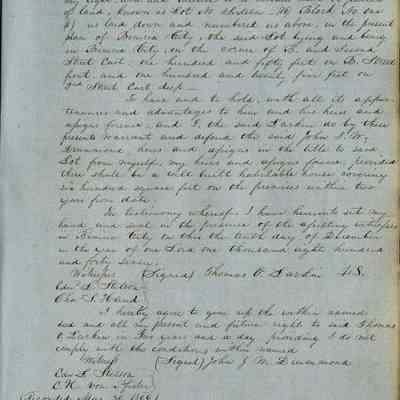 my right, and
of land, known as Lot No. Sixteen (16) Block No. one
as laid down and numbered as above, in the present
plan of Benicia City, the said Lot lying and being
in Benicia City, on the corner of B. and Second
Street East; one hundred and fifty feet on B. Street
front, and one hundred and twenty five feet on
2nd Street East deep —
To have and to hold, with all its appur-
tenances and advantages to him and his heirs and
assigns forever; and I, the said Larkin do by these
presents warrant and defend the said John J. W.
Drummond, heirs and assigns in the title to said
Lot from myself, my heirs and assigns forever, provided
there shall be a well built habitable house covering
six hundred square feet on the premises within two
years from date.
In testimony whereof I have hereunto set my
hand and seal in the presence of the assisting witnesses
in Benicia City on this the tenth day of December
in the year of our Lord one thousand eight hundred
and forty seven.
Witnesses (Signed) Thomas O. Larkin L.S.
Edw. L. Stetson
Chas. S. Hand
I hereby agree to give up the within named
deed and all my present and future right to said Thomas
O. Larkin in two years and a day providing I do not
comply with the conditions within named
Witness (Signed) John J. W. Drummond
Edw. L. Stetson
C. H. von Pfister
Recorded Mar.